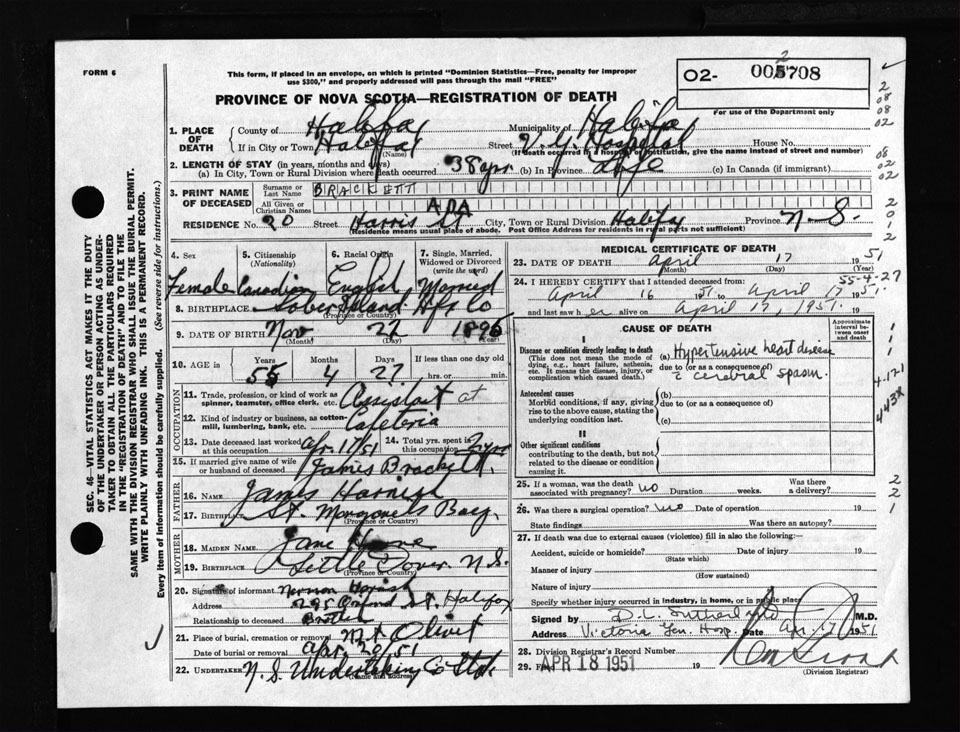 FORM 6
This form, if placed in an envelope, on which is printed "Dominion Statistics—Free, penalty for improper
use $300," and properly addressed will pass through the mail "FREE"
O2- 005708
2
For use of the Department only
PROVINCE OF NOVA SCOTIA—REGISTRATION OF DEATH
1. PLACE OF DEATH County of Halifax Municipality of Halifax
If in City or Town Halifax (Name) Street V. G. Hospital House No.
(If death occurred in a hospital or institution, give the name instead of street and number)
2. LENGTH OF STAY (in years, months and days)
(a) In City, Town or Rural Division where death occurred 38 yrs (b) In Province Life (c) In Canada (if immigrant)
3. PRINT NAME OF DECEASED Surname or Last Name BRACKETT
All Given or Christian Names ADA
RESIDENCE No. 20 Street Harris St City, Town or Rural Division Halifax Province N. S.
(Residence means usual place of abode. Post Office Address for residents in rural parts not sufficient)
4. Sex 5. Citizenship (Nationality) 6. Racial Origin 7. Single, Married, Widowed or Divorced (write the word)
Female Canadian English Married
8. BIRTHPLACE Sober Island Hfx Co
9. DATE OF BIRTH Nov (Month) 22 (Day) 1895 (Year)
10. AGE Years 55 Months 4 Days 27 If less than one day old hrs. or min.
OCCUPATION
11. Trade, profession, or kind of work as spinner, teamster, office clerk, etc. Assistant at
12. Kind of industry or business, as cotton-mill, lumbering, bank, etc. Cafeteria
13. Date deceased last worked at this occupation Apr. 17/51 14. Total yrs. spent in this occupation 2 yrs
15. If married give name of wife or husband of deceased James Brackett.
FATHER
16. Name James Harnish
17. Birthplace St. Margarets Bay. (Province or Country)
MOTHER
18. Maiden Name Jane
19. Birthplace Little Dover N.S. (Province or Country)
20. Signature of informant Norman Harnish
Address 295 Oxford St. Halifax
Relationship to deceased Brother
21. Place of burial, cremation or removal Mt Olivet
Date of burial or removal Apr. 20/51
22. UNDERTAKER N. S. Undertaking Co Ltd. (Name and address)
MEDICAL CERTIFICATE OF DEATH
23. DATE OF DEATH April (Month) 17 (Day) 1951 (Year)
55-4-27
24. I HEREBY CERTIFY that I attended deceased from:
April 16 1951 to April 17 1951.
and last saw her alive on April 17, 1951. 19
CAUSE OF DEATH
Approximate interval between onset and death
I
Disease or condition directly leading to death
(This does not mean the mode of dying, e.g., heart failure, asthenia, etc. It means the disease, injury, or complication which caused death.)
(a) Hypertensive heart disease
due to (or as a consequence of)
c̄ cerebral spasm.
Antecedent causes
Morbid conditions, if any, giving rise to the above cause, stating the underlying condition last.
(b)
due to (or as a consequence of)
(c)
II
Other significant conditions
contributing to the death, but not related to the disease or condition causing it
25. If a woman, was the death associated with pregnancy? no Duration weeks. Was there a delivery?
26. Was there a surgical operation? no Date of operation 19
State findings Was there an autopsy?
27. If death was due to external causes (violence) fill in also the following:
Accident, suicide or homicide? (State which) Date of injury 19
Manner of injury (How sustained)
Nature of injury
Specify whether injury occurred in industry, in home, or in public place
Signed by D. Sutherland M.D.
Address Victoria Gen. Hosp. Date Apr. 17 1951
28. Division Registrar's Record Number
29. Filed APR 18 1951 19
(Division Registrar)
SEC. 46—VITAL STATISTICS ACT MAKES IT THE DUTY
OF THE UNDERTAKER OR PERSON ACTING AS UNDER-
TAKER TO OBTAIN ALL THE PARTICULARS REQUIRED
IN THE "REGISTRATION OF DEATH" AND TO FILE THE
SAME WITH THE DIVISION REGISTRAR WHO SHALL ISSUE THE BURIAL PERMIT.
WRITE PLAINLY WITH UNFADING INK. THIS IS A PERMANENT RECORD.
Every item of information should be carefully supplied. (See reverse side for instructions.)
2
08
08
02
08
02
02
2
0
1
2
1
1
1
4-171
443X
2
2
1